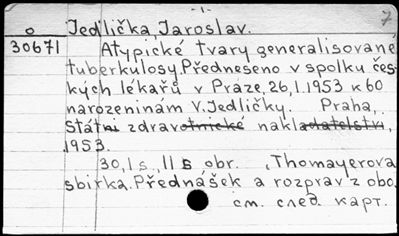 - 1 -
7
o Jedlička, Jaroslav.
30671 Atypické tvary generalisované
tuberkulosy. Předneseno v spolku čes-
kých lékařů v Praze, 26,1.1953 k 60
narozeninám V. Jedličky. Praha,
Státní zdravotnické nakladatelství,
1953.
30,1 s, 11 s obr. , Thomayerova
sbírka. Přednášek a rozprav z obo.
см. след. карт.